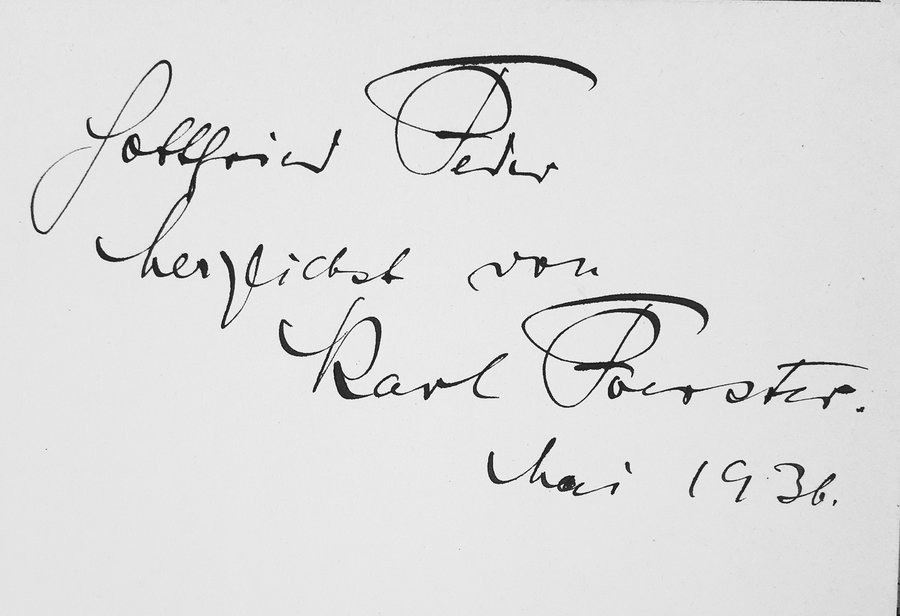 Gottfried Feder
herzlichst von
Karl Foerster.
Mai 1936.